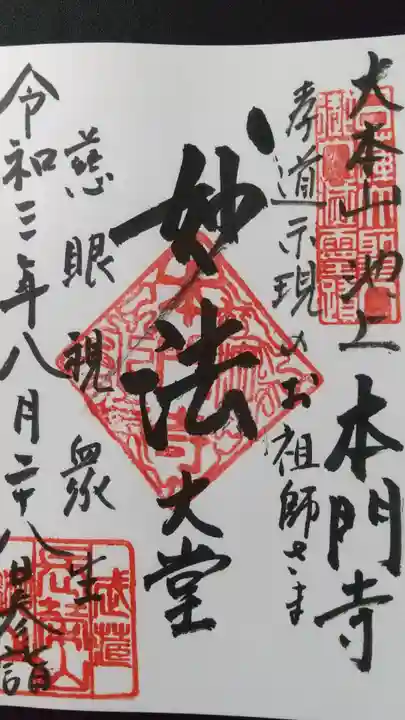 大本山池上本門寺
孝道示現のお祖師さま
妙法
大堂
慈眼視衆生
令和三年八月二十八日参詣